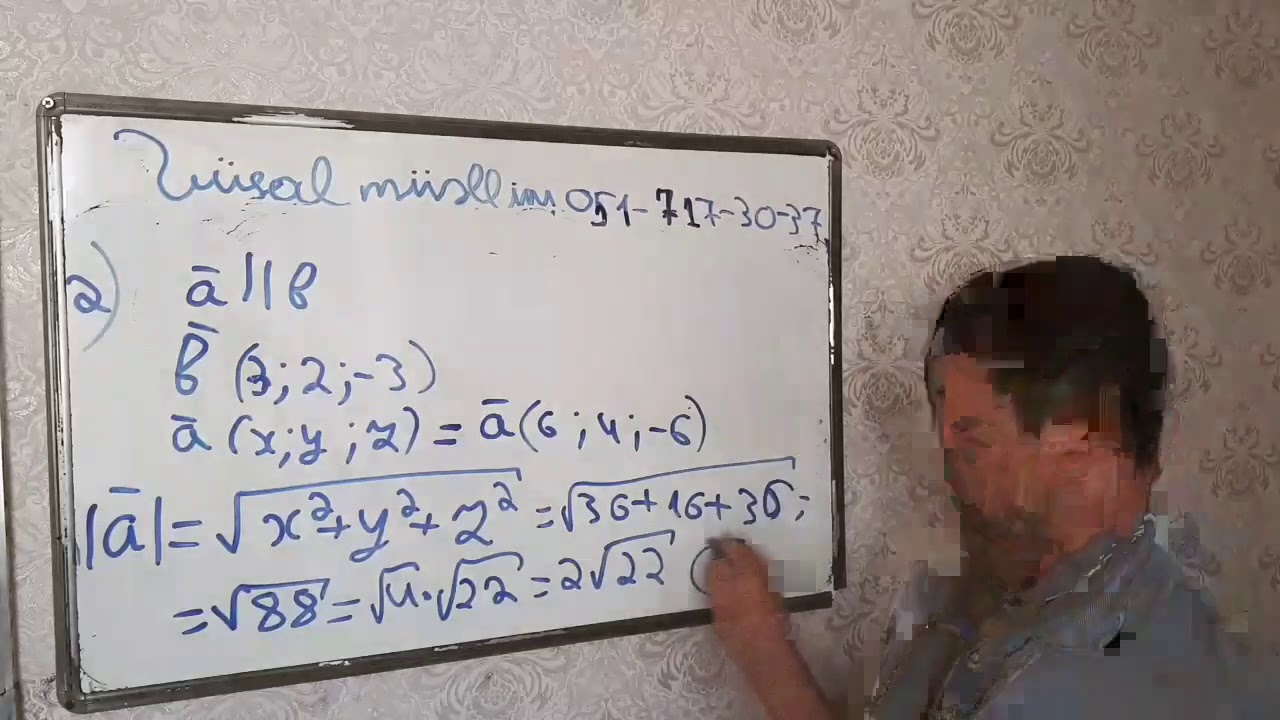 Vüsal müəllim 051-717-30-37
2) ā || b
b̄ (3; 2; -3)
ā (x; y; z) = ā (6; 4; -6)
|ā| = √x²+y²+z² = √36+16+36;
= √88 = √4 · √22 = 2√22